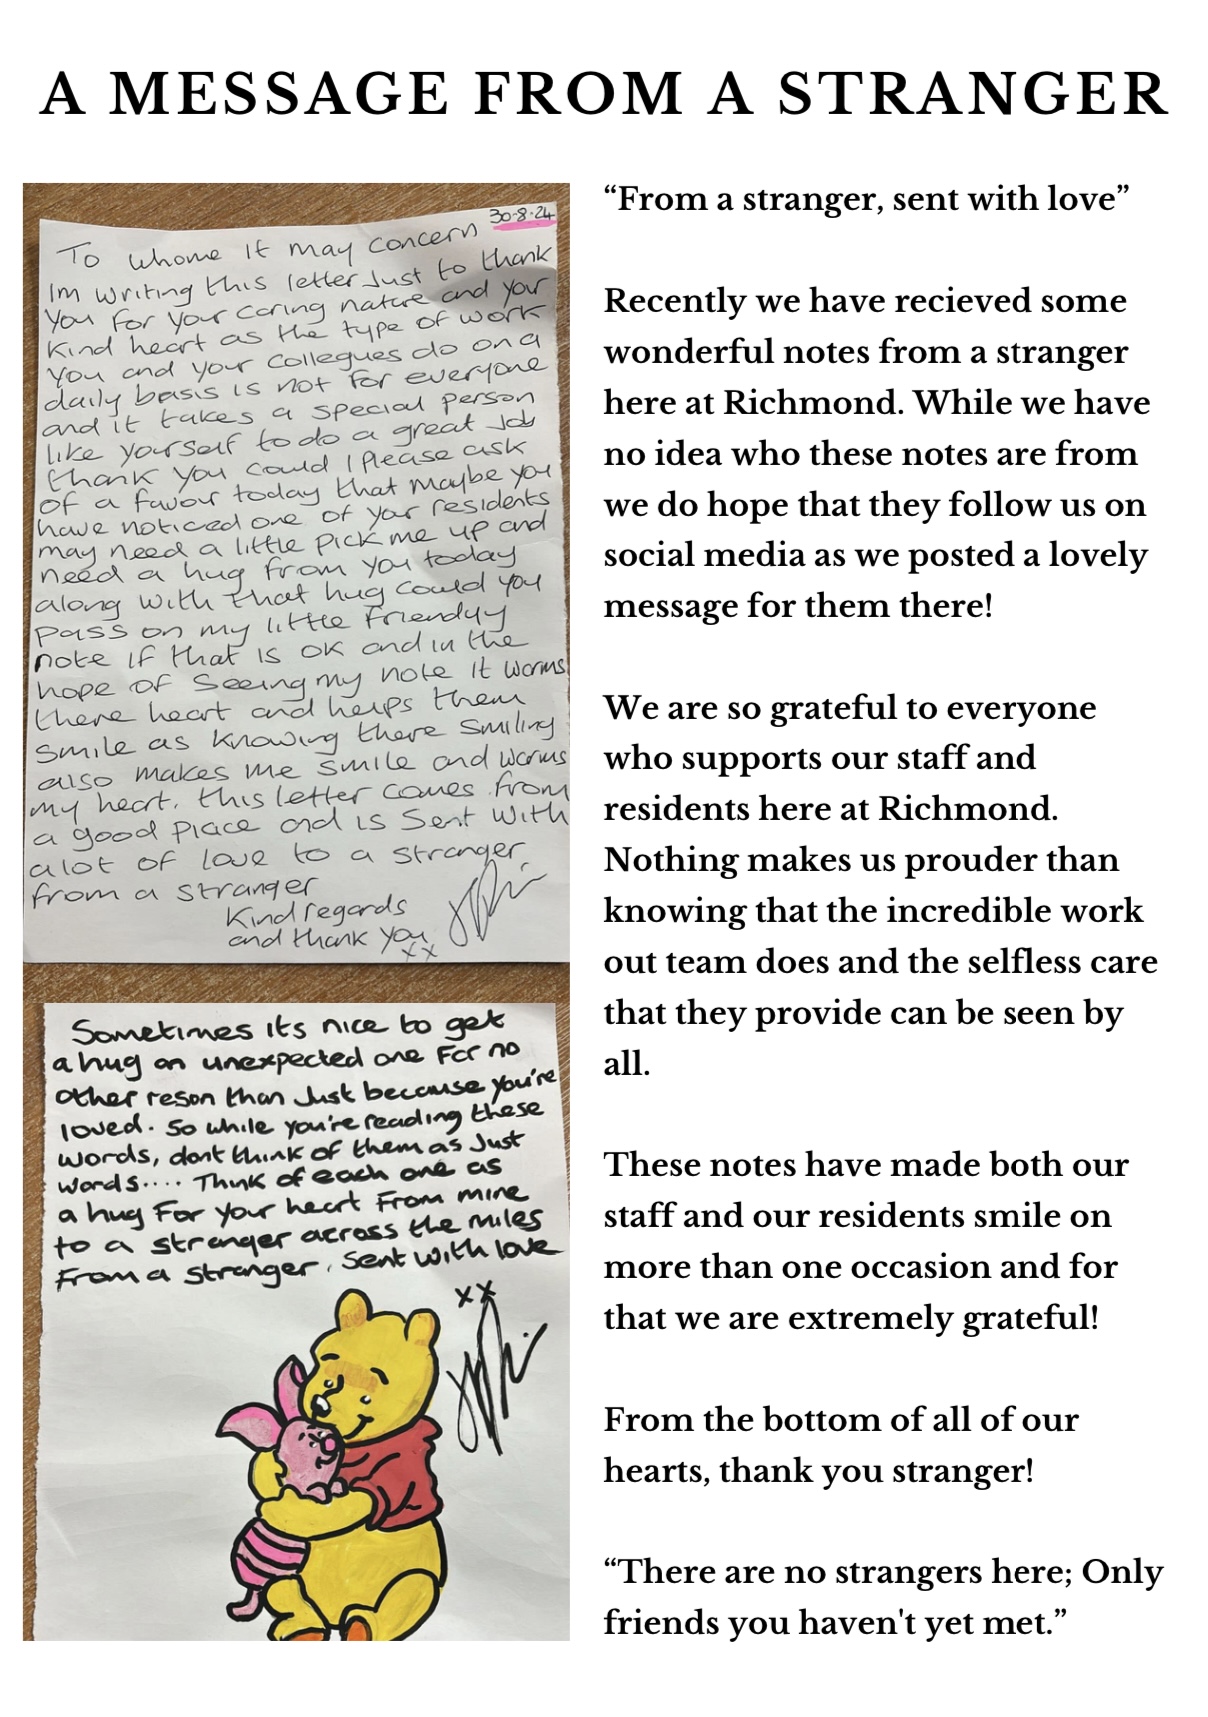 A MESSAGE FROM A STRANGER
30-8-24
To whome it may concern
Im writing this letter Just to thank
you for your caring nature and your
kind heart as the type of work
you and your collegues do on a
daily basis is not for everyone
and it takes a special person
like yourself to do a great Job
thank you could I please ask
of a favour today that maybe you
have noticed one of your residents
may need a little pick me up and
need a hug from you today
along with that hug could you
pass on my little friendly
note if that is ok and in the
hope of seeing my note it warms
there heart and helps them
smile as knowing there smiling
also makes me smile and warms
my heart. this letter comes from
a good place and is sent with
a lot of love to a stranger
from a stranger
Kind regards
and thank you
xx
Sometimes its nice to get
a hug an unexpected one for no
other reson than Just because you're
loved. So while you're reading these
words, dont think of them as Just
words.... Think of each one as
a hug for your heart from mine
to a stranger across the miles
from a stranger. Sent with love
xx
“From a stranger, sent with love”
Recently we have recieved some
wonderful notes from a stranger
here at Richmond. While we have
no idea who these notes are from
we do hope that they follow us on
social media as we posted a lovely
message for them there!
We are so grateful to everyone
who supports our staff and
residents here at Richmond.
Nothing makes us prouder than
knowing that the incredible work
out team does and the selfless care
that they provide can be seen by
all.
These notes have made both our
staff and our residents smile on
more than one occasion and for
that we are extremely grateful!
From the bottom of all of our
hearts, thank you stranger!
“There are no strangers here; Only
friends you haven't yet met.”